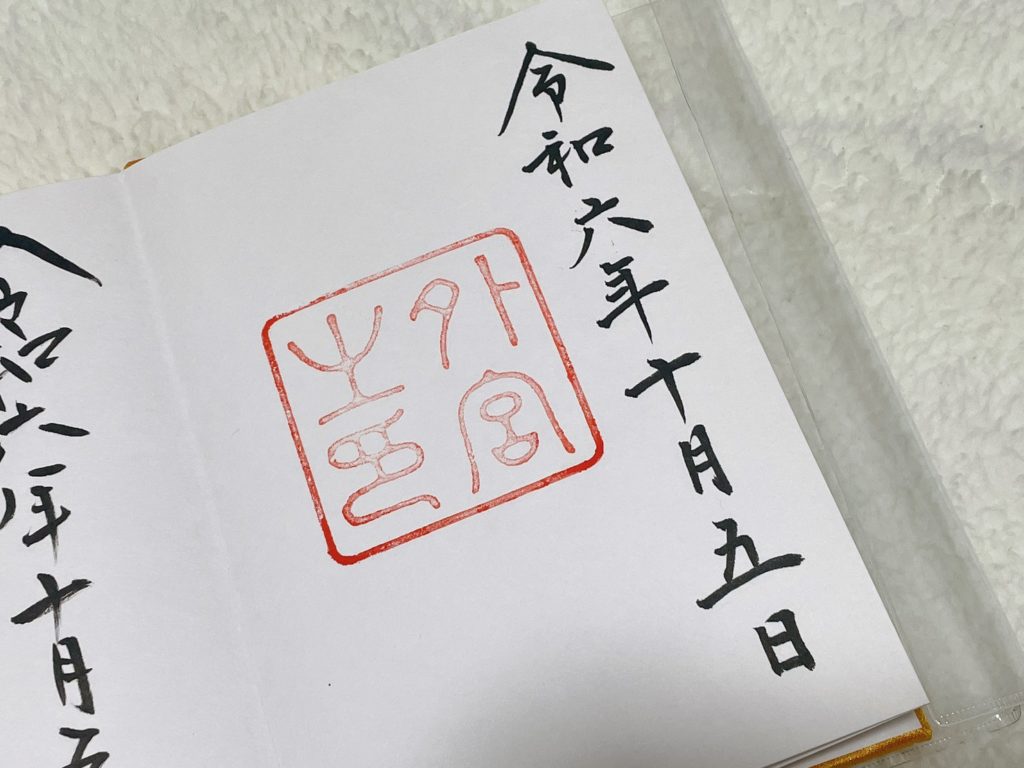 令和六年十月五日
外宮
之印
令和六年十月五